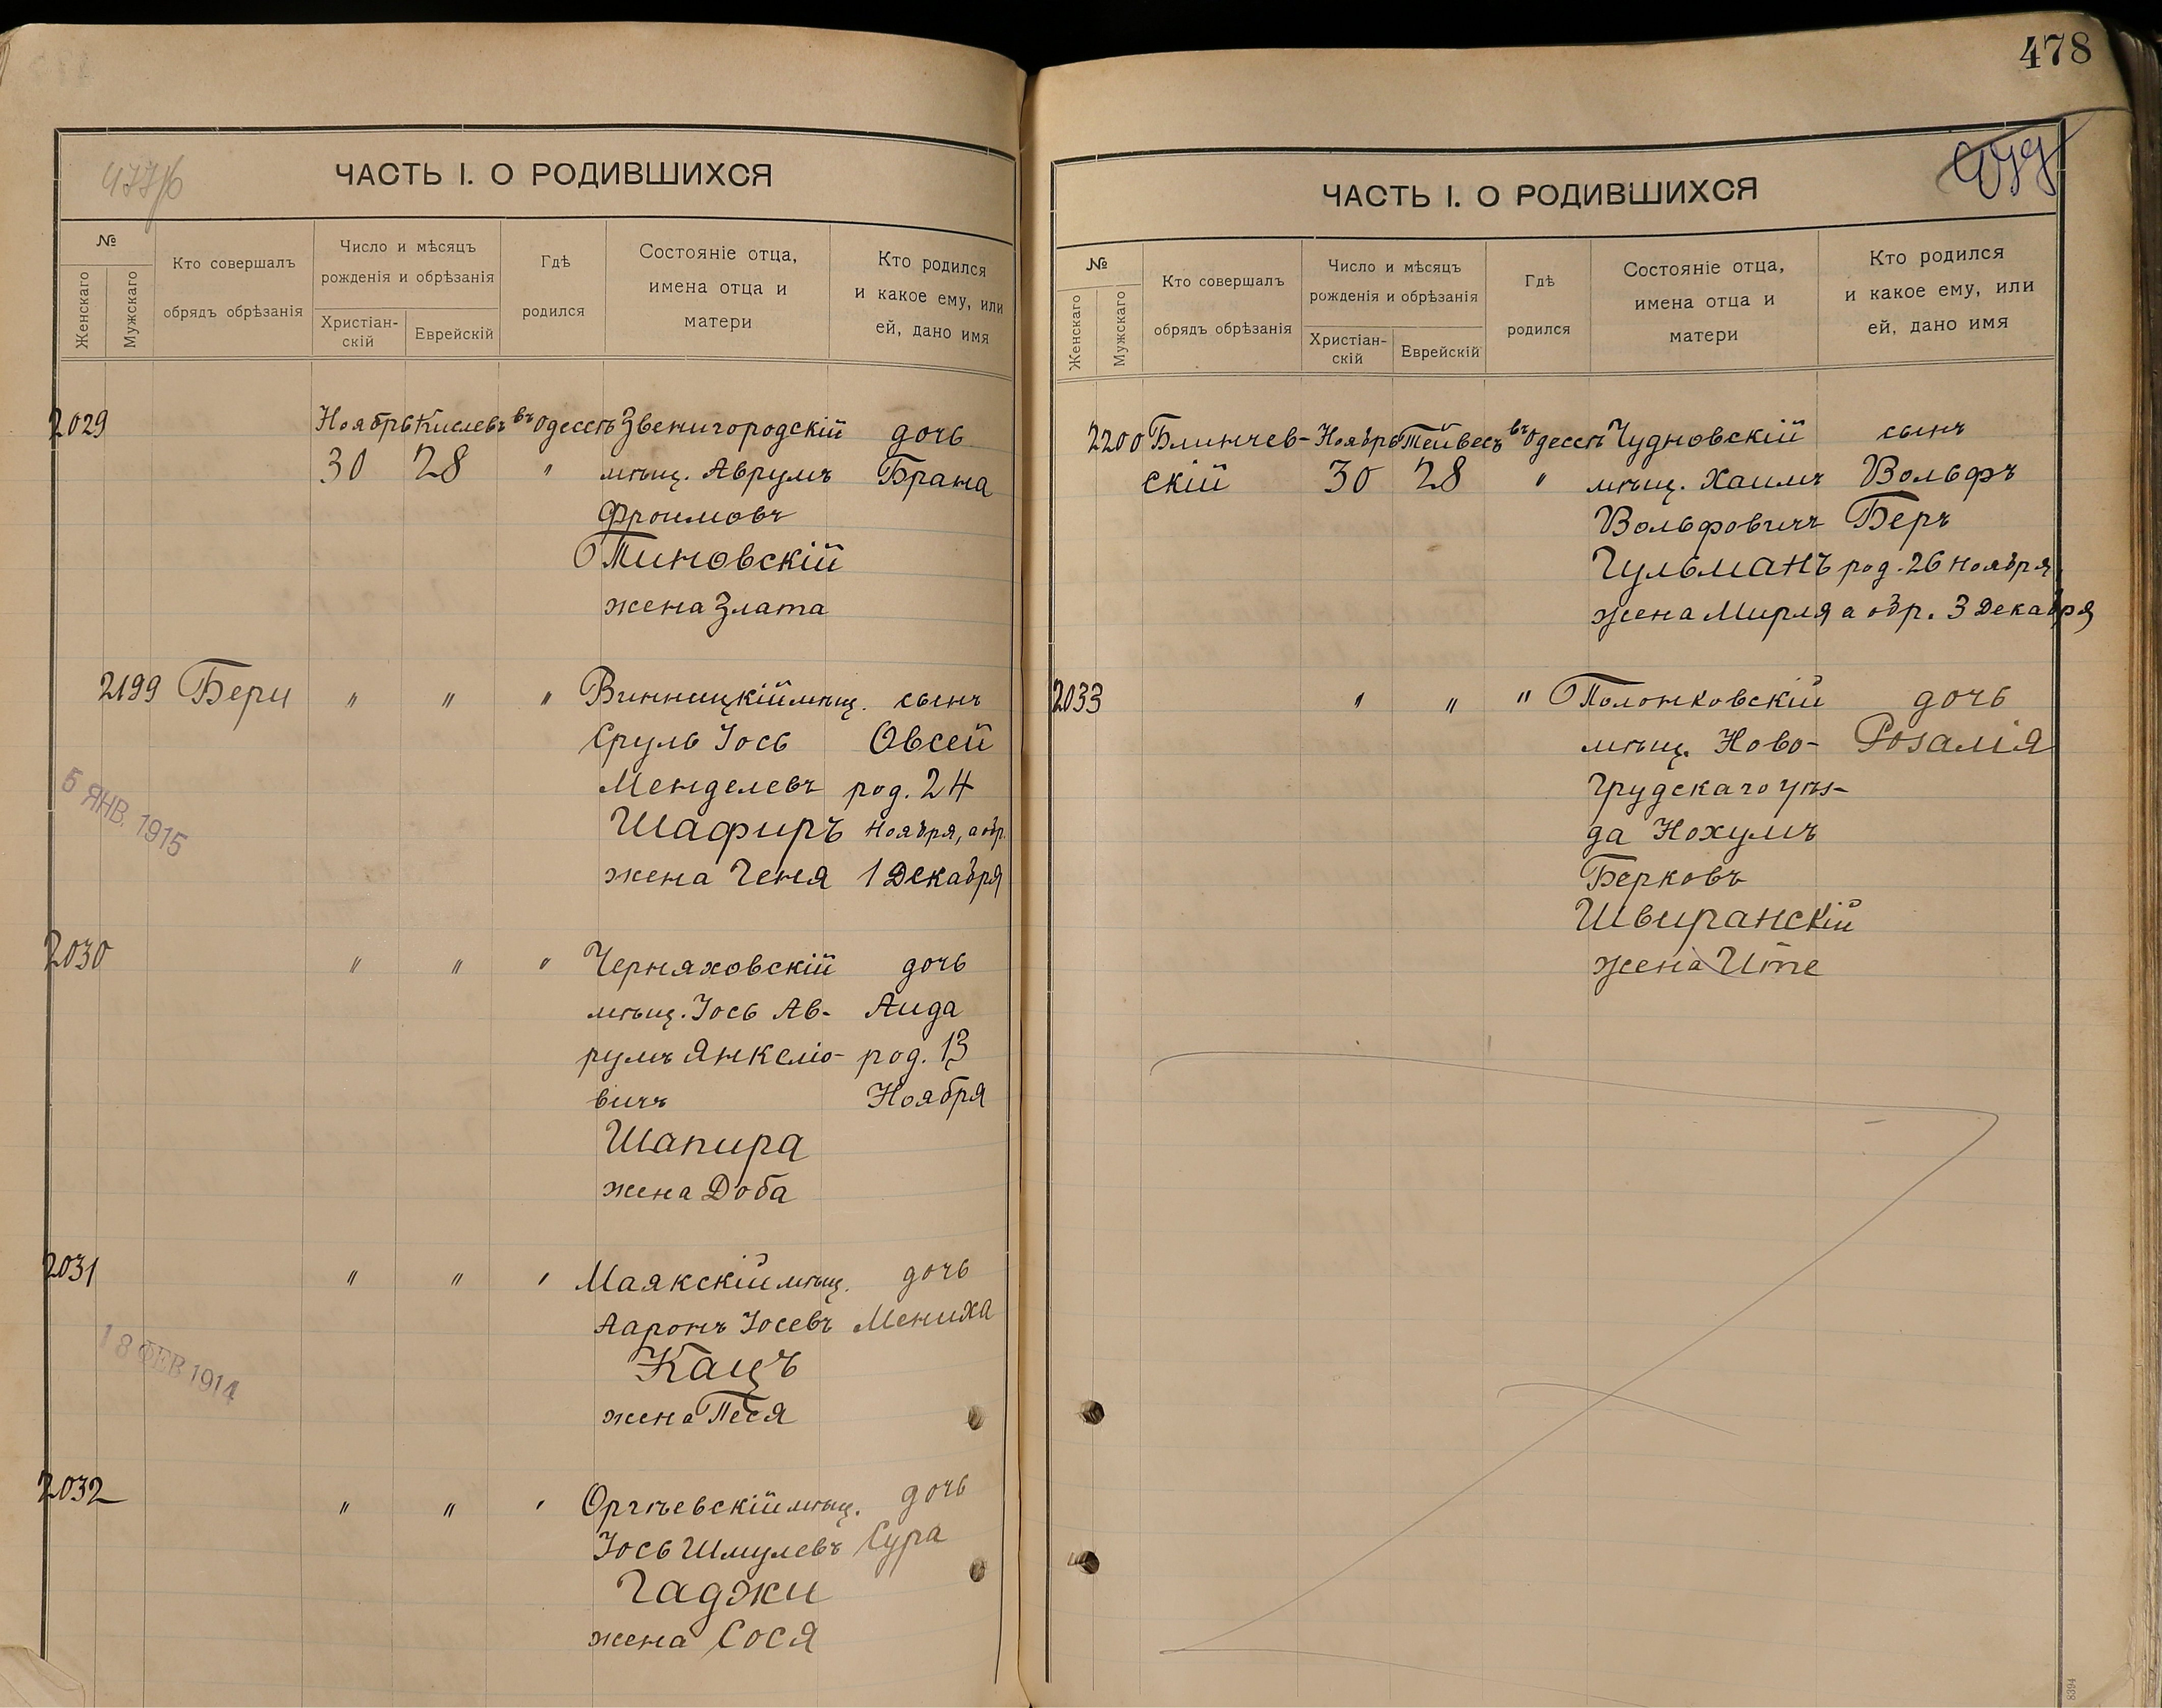 478
477/б
ЧАСТЬ I. О РОДИВШИХСЯ
№
Женскаго
Мужскаго
Кто совершалъ
обрядъ обрѣзанія
Число и мѣсяцъ
рожденія и обрѣзанія
Христіан-
скій
Еврейскій
Гдѣ
родился
Состояніе отца,
имена отца и
матери
Кто родился
и какое ему, или
ей, дано имя
2029 Ноябрь Кислевъ въ Одессѣ Звенигородскій дочь
30 28 " мѣщ. Аврумъ Брана
Фроимовъ
Тиновскій
жена Злата
2199 Бери " " " Винницкій мѣщ. сынъ
Сруль Іось Овсей
Менделевъ род. 24
Шафиръ Ноября, а обр.
жена Геня 1 Декабря
5 ЯНВ. 1915
2030 " " " Черняховскій дочь
мѣщ. Іось Ав- Аида
румъ Янкеліо- род. 13
вичъ Ноября
Шапира
жена Доба
2031 " " " Маякскій мѣщ. дочь
Ааронъ Іосевъ Мениха
Кацъ
жена Песя
18 ФЕВ 1914
2032 " " " Оргѣевскій мѣщ. дочь
Іось Шмулевъ Сура
Гаджи
жена Сося
ЧАСТЬ I. О РОДИВШИХСЯ
№
Женскаго
Мужскаго
Кто совершалъ
обрядъ обрѣзанія
Число и мѣсяцъ
рожденія и обрѣзанія
Христіан-
скій
Еврейскій
Гдѣ
родился
Состояніе отца,
имена отца и
матери
Кто родился
и какое ему, или
ей, дано имя
2200 Блинчев- Ноябрь Тейвесъ въ Одессѣ Чудновскій сынъ
скій 30 28 " мѣщ. Хаимъ Вольфъ
Вольфовичъ Беръ
Гульманъ род. 26 Ноября
жена Мирля а обр. 3 Декабря
2033 " " " Полонковскій дочь
мѣщ. Ново- Розалія
грудскаго уѣз-
да Нохумъ
Берковъ
Швиранскій
жена Ите
8394